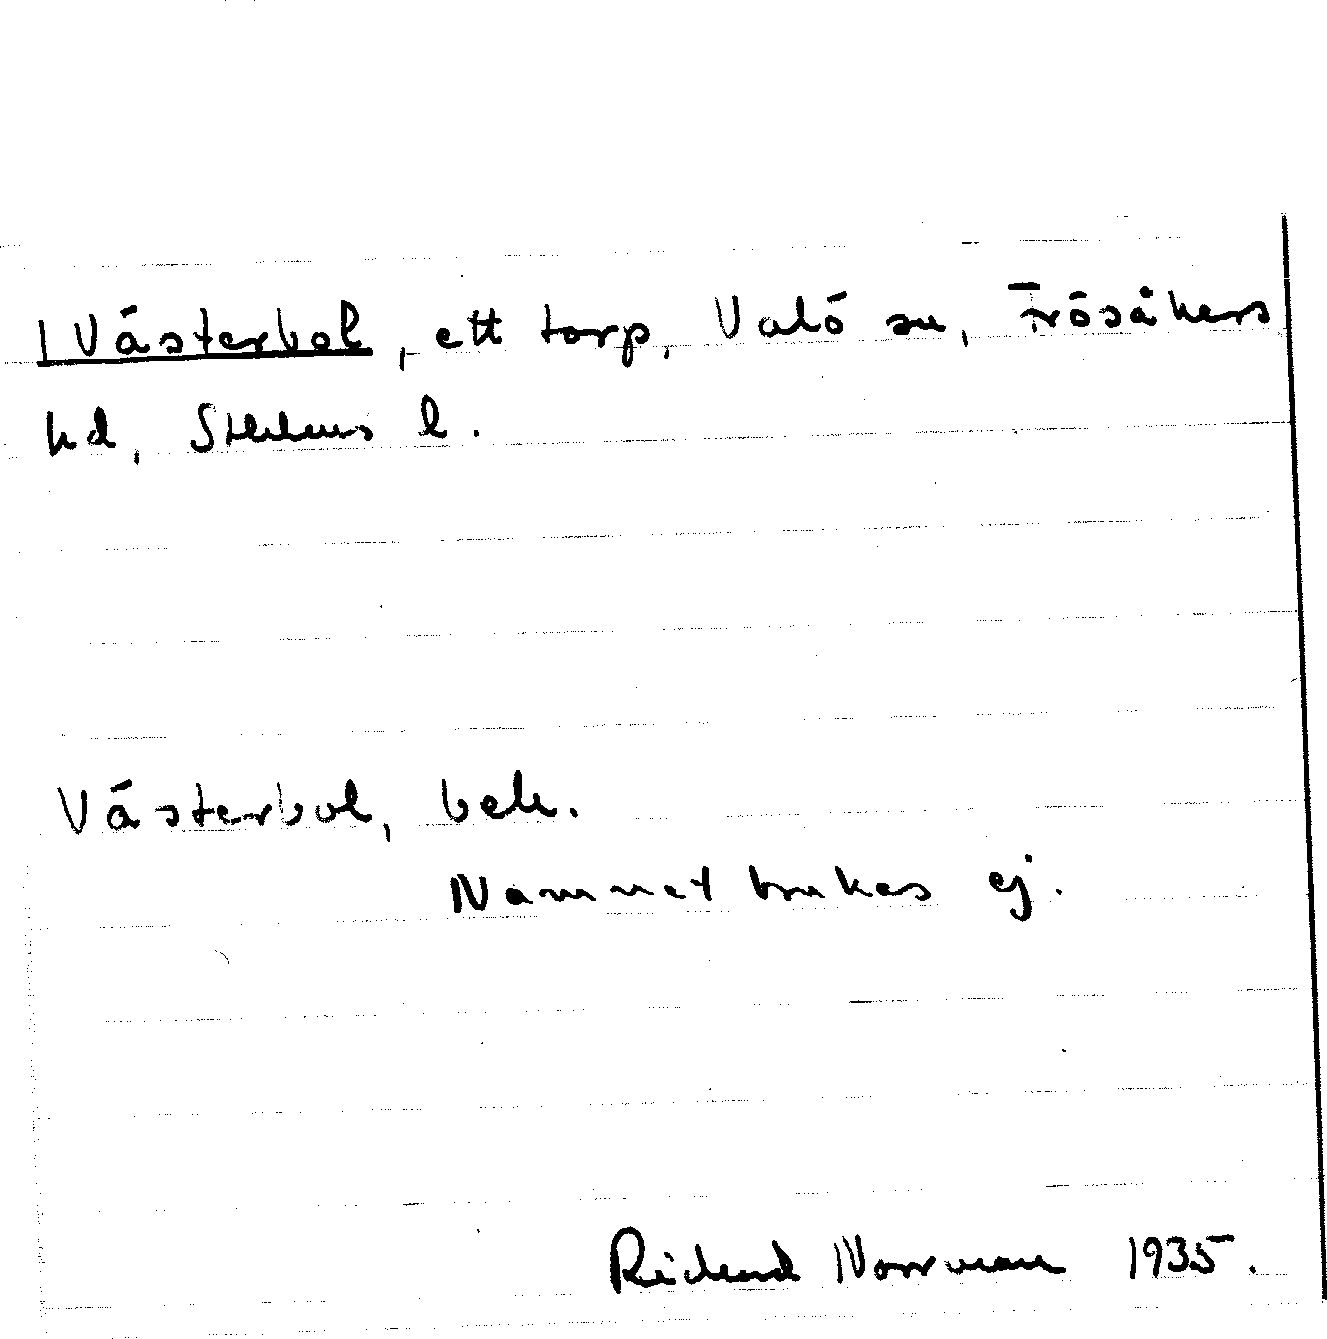 1 Västerbol, ett torp, Valö sn, Frösåkers
hd, Sthlms l.
Västerbol, bek.
Namnet brukas ej.
Richard Norrman 1935.